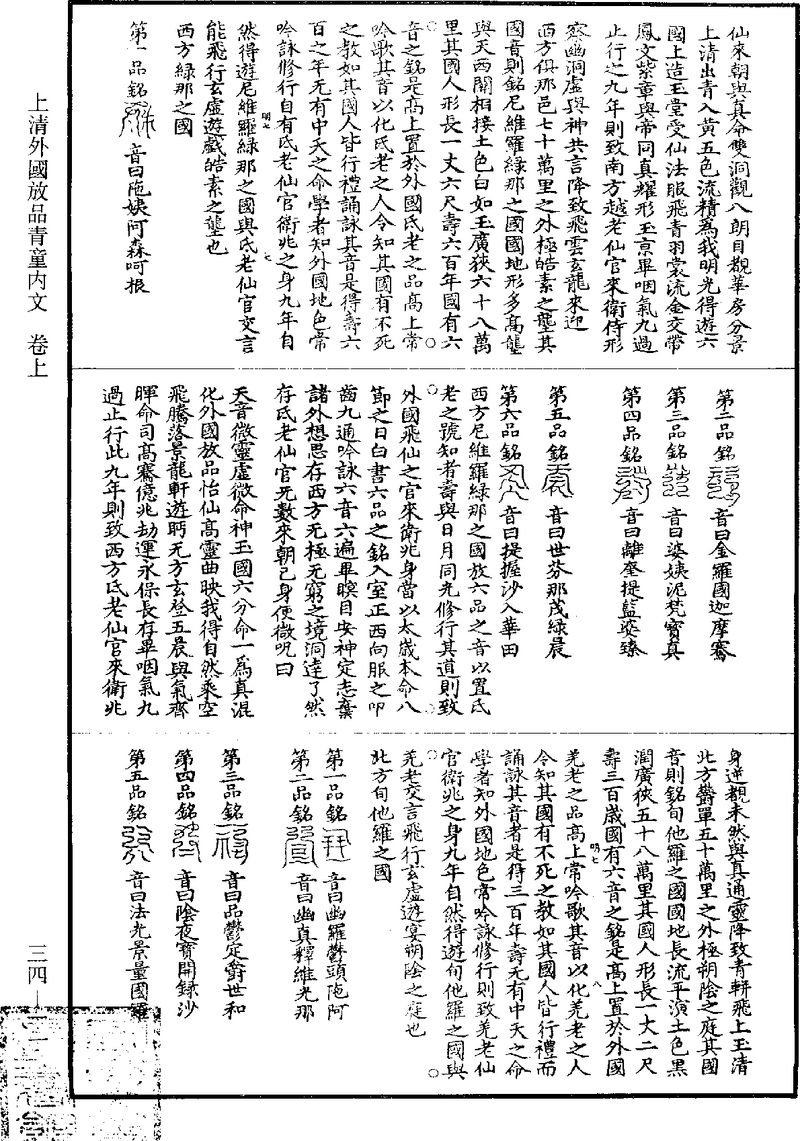 上清外國放品青童內文　卷上
仙來朝與真命雙洞觀八朗目觀華房分景
上清出青入黃五色流精為我明光得遊六
國上造玉堂受仙法服飛青羽裳流金交帶
鳳文紫章與帝同真耀形玉京畢咽氣九過
止行之九年則致南方越老仙官來衛侍形
察幽洞虛與神共言降致飛雲玄龍來迎
西方俱那邑七十萬里之外極皓素之壟其
國音則銘尼維羅綠那之國國地形多高壟
與天西關相接土色白如玉廣狹六十八萬
里其國人形長一丈六尺壽六百年國有六
音之銘是高上置於外國氐老之品高上常
吟歌其音以化氐老之人令知其國有不死
之教如其國人皆行禮誦詠其音是得壽六
百之年无有中夭之命學者知外國地色常
吟詠修行自有氐老仙官衛兆之身九年自
然得遊尼維羅綠那之國與氐老仙官交言
能飛行玄虛遊戲皓素之壟也
西方綠那之國
第一品銘 音曰陁姨阿森呵根
第二品銘 音曰金羅國迦摩騫
第三品銘 音曰婆姨泥梵寶真
第四品銘 音曰離奎提藍婆臻
第五品銘 音曰世芬那茂綠晨
第六品銘 音曰提握沙入華田
西方尼維羅綠那之國放六品之音以置氐
老之號知者壽與日月同光修行其道則致
外國飛仙之官來衛兆身當以太歲本命八
節之日白書六品之銘入室正西向服之叩
齒九通吟詠六音六遍畢瞑目安神定志棄
諸外想思存西方无極无窮之境洞達了然
存氐老仙官无數來朝己身便微呪曰
天音微靈虛微命神玉國六分命一為真混
化外國放品怡仙高靈曲映我得自然乘空
飛騰落景龍軒遊眄无方玄登五晨與氣齊
暉命司高騫億劫運永保長存畢咽氣九
過止行此九年則致西方氐老仙官來衛兆
身逆覩未然與真通靈降致青軿飛上玉清
北方鬱單五十萬里之外極朔陰之庭其國
音則銘旬他羅之國國地長流平演土色黑
潤廣狹五十八萬里其國人形長一丈二尺
壽三百歲國有六音之銘是高上置於外國
羌老之品高上常吟歌其音以化羌老之人
令知其國有不死之教如其國人皆行禮而
誦詠其音者是得三百年壽无有中夭之命
學者知外國地色常吟詠修行則致羌老仙
官衛兆之身九年自然得遊旬他羅之國與
羌老交言飛行玄虛遊宴朔陰之庭也
北方旬他羅之國
第一品銘 音曰幽羅鬱頭陁阿
第二品銘 音曰幽真釋維光那
第三品銘 音曰品鬱定霨世和
第四品銘 音曰陰夜寶開録沙
第五品銘 音曰法光景量國羅
三四—一一